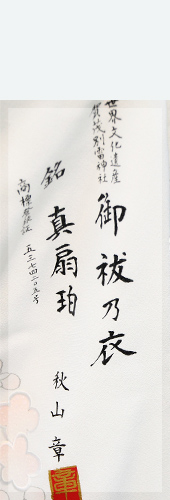 世界文化遺産
賀茂別雷神社
御祓乃衣
銘 真扇珀
商標登録証 五三七四二〇五号
秋山 章